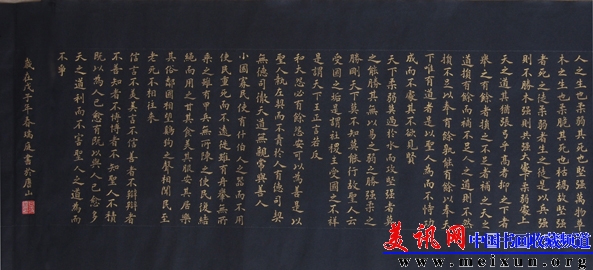 人之生也柔弱其死也堅強萬物草
木之生也柔脆其死也枯槁故堅強
者死之徒柔弱者生之徒是以兵強
則不勝木強則共強大處下柔弱處上
天之道其猶張弓乎高者抑之下者
舉之有餘者損之不足者補之天之
道損有餘而補不足人之道則不然
損不足以奉有餘孰能有餘以奉天
下唯有道者是以聖人為而不恃功
成而不處其不欲見賢
天下柔弱莫過於水而攻堅強者莫
之能勝其無以易之弱之勝強柔之
勝剛天下莫不知莫能行故聖人云
受國之垢是謂社稷主受國之不祥
是謂天下王正言若反
和大怨必有餘怨安可以為善是以
聖人執左契而不責於人有德司契
無德司徹天道無親常與善人
小國寡民使有什伯人之器而不用
使民重死而不遠徙雖有舟輿無所
乘之雖有甲兵無所陳之使民復結
繩而用之甘其食美其服安其居樂
其俗鄰國相望雞狗之聲相聞民至
老死不相往來
信言不美美言不信善者不辯辯者
不善知者不博博者不知聖人不積
既以為人己愈有既以與人己愈多
天之道利而不害聖人之道為而
不爭
歲在戊子年春瑞庭書於唐山
美讯网 中国书画收藏频道
www.meixun.org